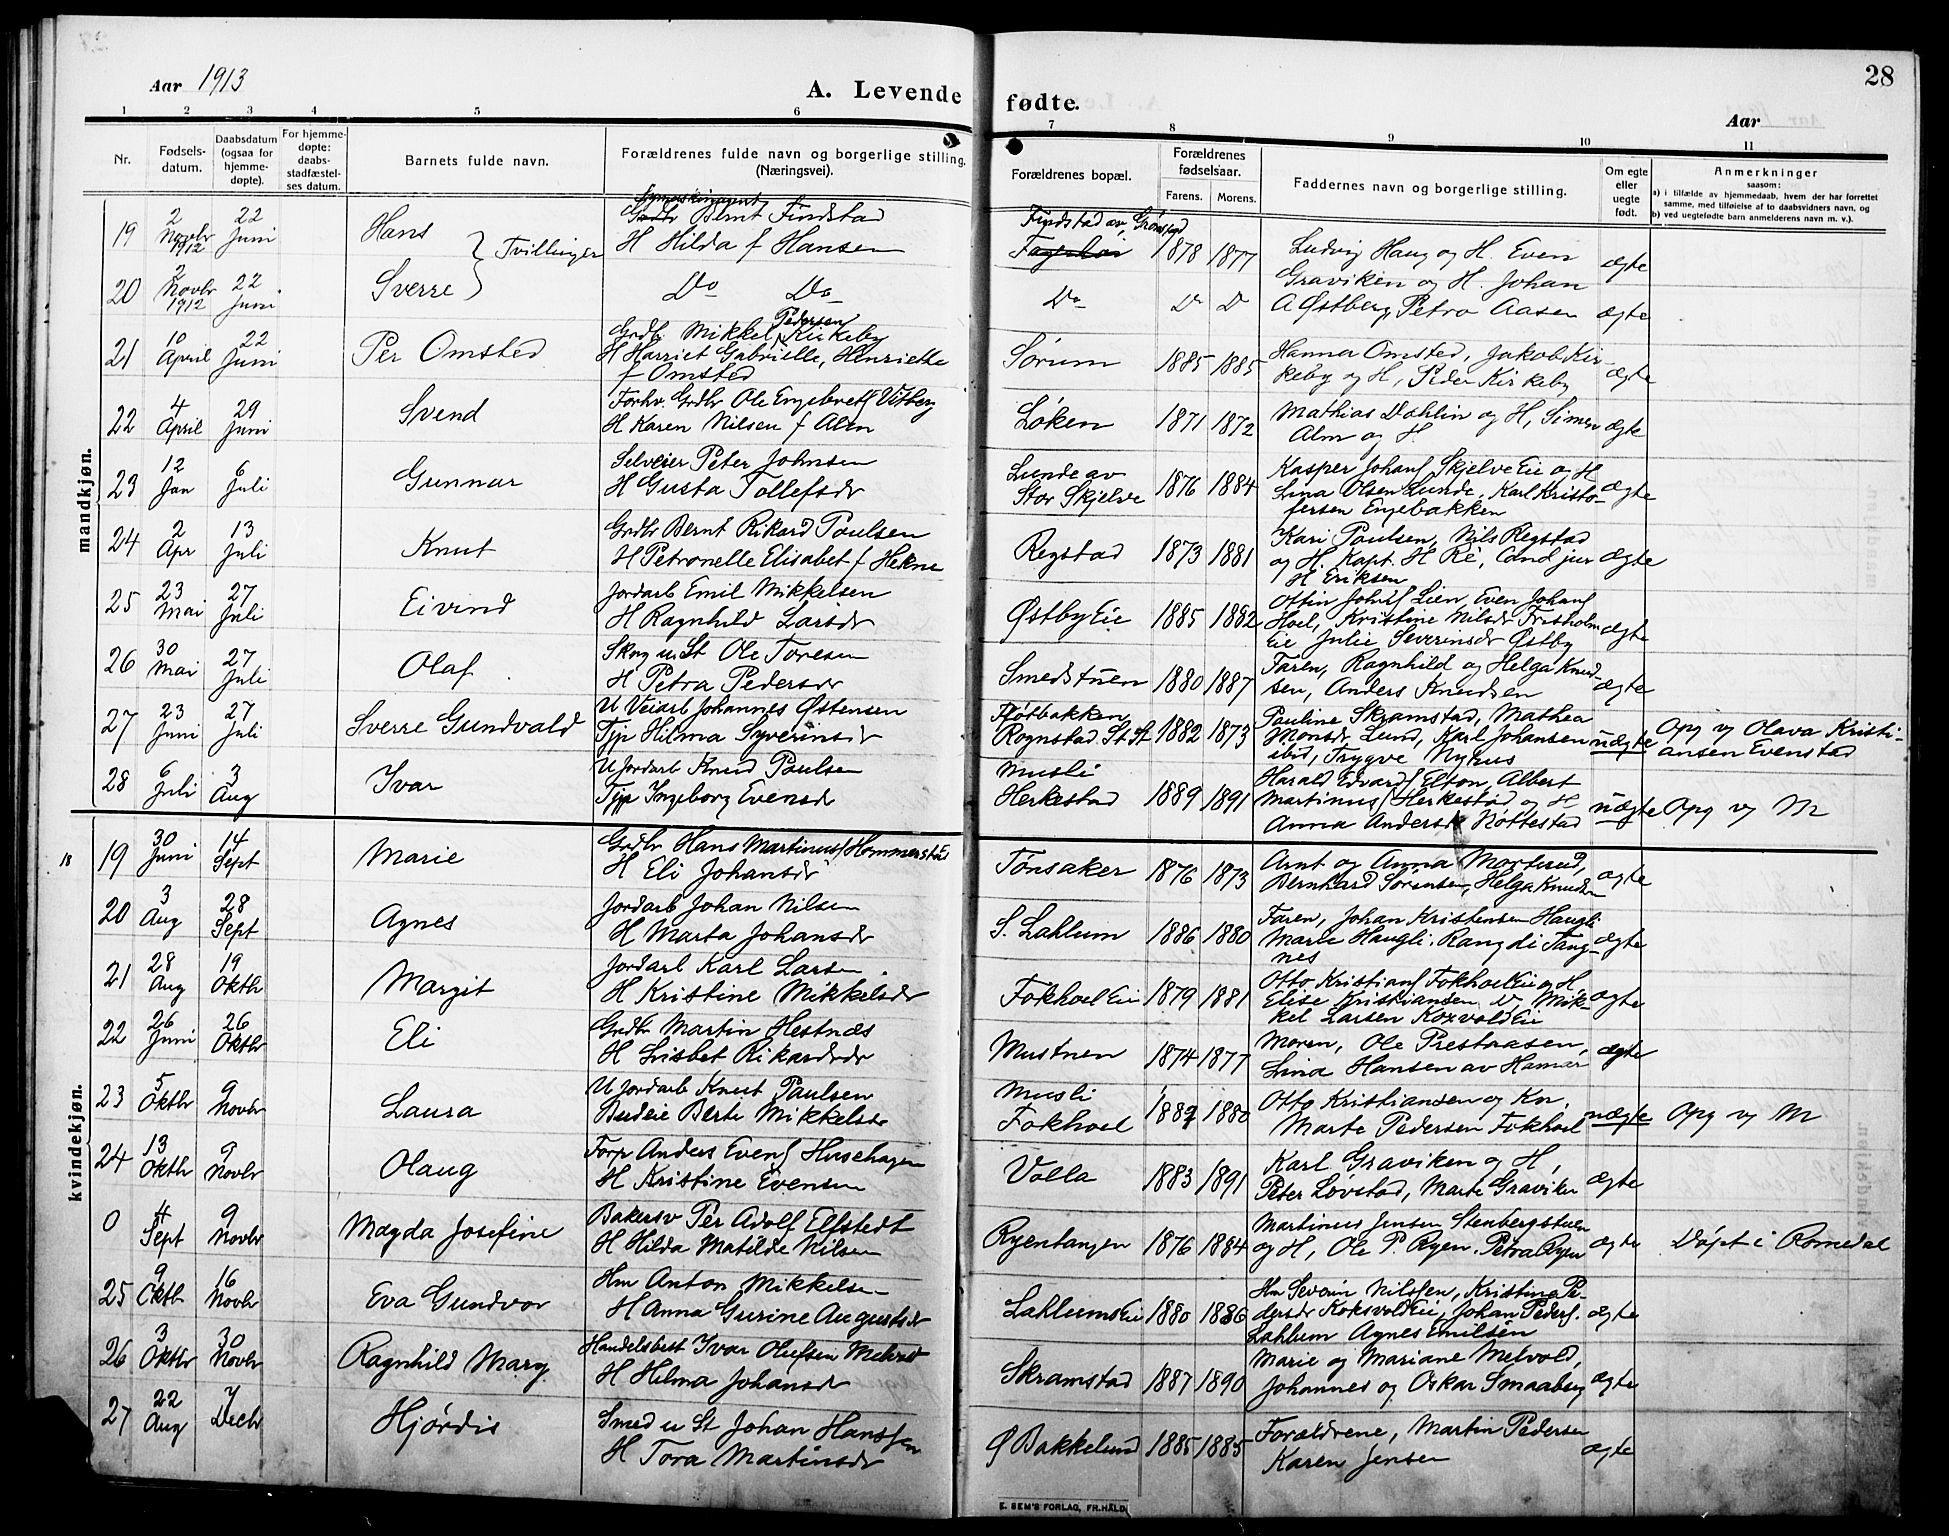 28
Aar 1913
A. Levende fødte.
Aar
1 2 3 4 5 6 7 8 9 10 11
Nr.
Fødsels-
datum.
Daabsdatum
(ogsaa for
hjemme-
døpte).
For hjemme-
døpte:
daabs-
stadfæstel-
ses datum.
Barnets fulde navn.
Forældrenes fulde navn og borgerlige stilling.
(Næringsvei).
Forældrenes bopæl.
Forældrenes
fødselsaar.
Farens. Morens.
Faddernes navn og borgerlige stilling.
Om egte
eller
uegte
født.
Anmerkninger
saasom:
a) i tilfælde av hjemmedaab, hvem der har forrettet
samme, med tilføielse af to daabsvidners navn, og
b) ved uegtefødte barn anmelderens navn m. v.).
mandkjøn.
19 2 Novbr 1912 22 Juni Hans } Tvillinger
Grdbr Bernt Findstad
H Hilda f Hansen
Findstad av Grønstad
1878 1877
Ludvig Haug og H. Even
Graviken og H. Johan
ægte
20 2 Novbr 1912 22 Juni Sverre
Do Do
Do D D
A Østberg, Petra Aasen ægte
21 10 April 22 Juni Per Omsted
Grdbr Mikkel Pedersen Kirkeby
H Harriet Gabrielle, Henriette
f Omsted
Sørum 1885 1885
Hanna Omsted, Jakob Kir-
keby og H, Peder Kirkeby
ægte
22 4 April 29 Juni Svend
Forhv. Grdbr Ole Engebrets Vitberg
H Karen Nilsen f Alm
Løken 1871 1872
Mathias Dæhlin og H, Simen
Alm og H
ægte
23 12 Jan 6 Juli Gunnar
Selveier Peter Johnsen
H Gusta Tollefsdr
Lunde av
Stor Skjelve 1876 1884
Kasper Johans Skjelve Eie og H
Lina Olsen Lunde, Karl Kristo-
fersen Engebakken
ægte
24 2 Apr 13 Juli Knut
Grdbr Bernt Rikard Poulsen
H Petronelle Elisabet f Hekne
Regstad 1873 1881
Kari Paulsen, Nils Regstad
og H. Kapt. H Ré, Cand jur
H Eriksen
ægte
25 23 Mai 27 Juli Eivind
Jordarb Emil Mikkelsen
H Ragnhild Larsdr
Østby Eie 1885 1882
Ottin Johns Lien, Even Johans
Hoel, Kristine Nilsdr Frisholm
Eie Julie Severinsdr Østby
ægte
26 30 Mai 27 Juli Olaf
Skog u St Ole Toresen
H Petra Pedersdr
Smedstuen 1880 1887
Faren, Ragnhild og Helga Knud-
sen, Anders Knudsen
ægte
27 23 Juni 27 Juli Sverre Gundvald
U Veiarb Johannes Østensen
Tjp Hilma Syverinsdr
Rognstad St St 1882 1873
Pauline Skramstad, Mathea
Monsdr Lund, Karl Johansen
ibid, Trygve Nyhus
uægte
Opg v Olava Kristi-
ansen Evenstad
28 6 Juli 3 Aug Ivar
U Jordarb Knud Poulsen
Tjp Ingeborg Evensdr
Musli
Herkestad 1889 1891
Harald Edvards Elton, Albert
Martinus Herkestad og H
Anna Andersdr Nøttestad
uægte
Opg v M
kvindekjøn.
18
19 30 Juni 14 Sept Marie
Grdbr Hans Martinus Hommerstad
H Eli Johansdr
Tønsaker 1876 1873
Arnt og Anna Morterud,
Bernhard Sørensen, Helga Knudsen
ægte
20 3 Aug 28 Sept Agnes
Jordarb Johan Nilsen
H Marta Johansdr
S. Lahlum 1886 1880
Faren, Johan Kristensen Haugli
Marie Haugli, Rangdi Tang-
nes
ægte
21 28 Aug 19 Oktbr Margit
Jordarb Karl Larsen
H Kristine Mikkelsdr
Fokhoel Eie 1879 1881
Otto Kristians Fokhoel Eie og H
Elise Kristiansen, Mik-
kel Larsen Koxvold Eie
ægte
22 26 Juni 26 Oktbr Eli
Grdbr Martin Hestnæs
H Lisbet Rikardsdr
Mustuen 1874 1877
Moren, Ole Prestaasen,
Lina Hansen av Hamar
ægte
23 5 Oktbr 9 Novbr Laura
U Jordarb Knut Paulsen
Budeie Berte Mikkelsdr
Musli
Fokhoel 1889 1880
Otto Kristiansen og Kn,
Marte Pedersen Fokhoel
uægte
Opg v M
24 13 Oktbr 9 Novbr Olaug
Forp Anders Evens Husehagen
H Kristine Evensen
Volla 1883 1891
Karl Graviken og H,
Peter Løvstad, Marte Graviken
ægte
0 4 Sept 9 Novbr Magda Josefine
Bakersv Per Adolf Elfstedt
H Hilda Matilde Nilsen
Ryentangen 1876 1884
Martinus Jensen Stenbergstuen
og H, Ole P. Ryen, Petra Ryen
ægte
Døpt i Romedal
25 9 Oktbr 16 Novbr Eva Gundvor
Hm Anton Mikkelsen
H Anna Gurine Augustsdr
Lahlums Eie 1880 1886
Hm Severin Nilssen, Kristine Pe-
dersdr Koksvold Eie, Johan Peders.
Lahlum Agnes Emilsen
ægte
26 3 Oktbr 30 Novbr Ragnhild Mary
Handelsbest Ivar Olufsen Melvold
H Helma Johansdr
Skramstad 1887 1890
Marie og Mariane Melvold,
Johannes og Oskar Smaaberg
ægte
27 22 Aug 7 Decbr Hjørdis
Smed u St Johan Hanssen
H Tora Martinsdr
Ø Bakkelund 1885 1885
Forældrene, Martin Pedersen
Karen Jensen
ægte
E. SEM'S FORLAG, FR.HALD